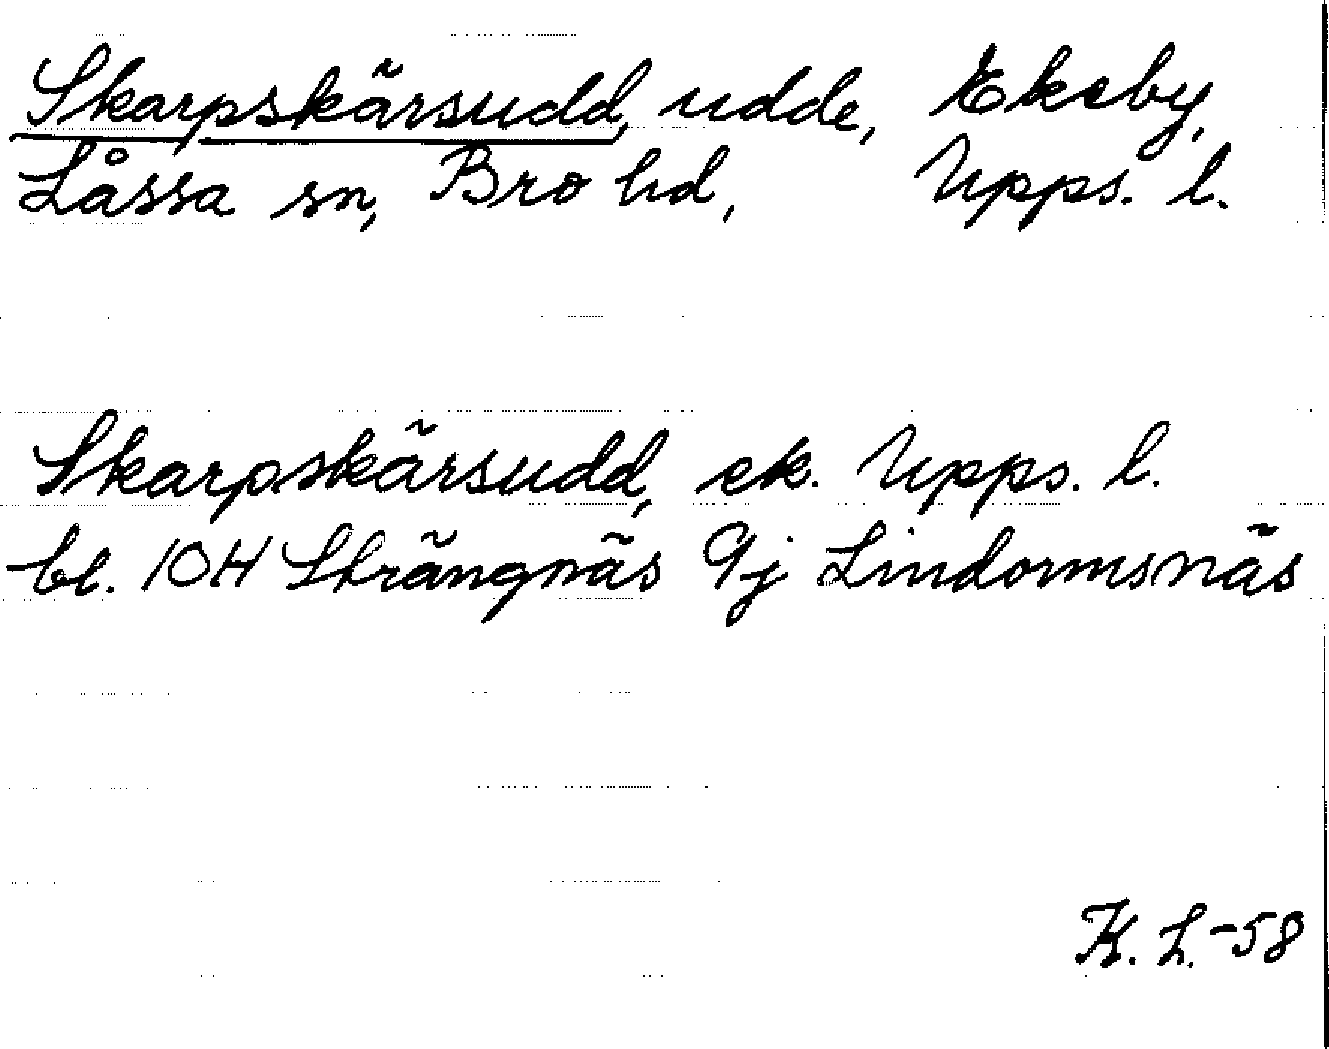 Skarpskärsudd, udde, Ekeby,
Låssa sn, Bro hd, Upps. l.
Skarpskärsudd, ek. Upps. l.
bl. 10H Strängnäs 9j Lindormsnäs
K. L. -58